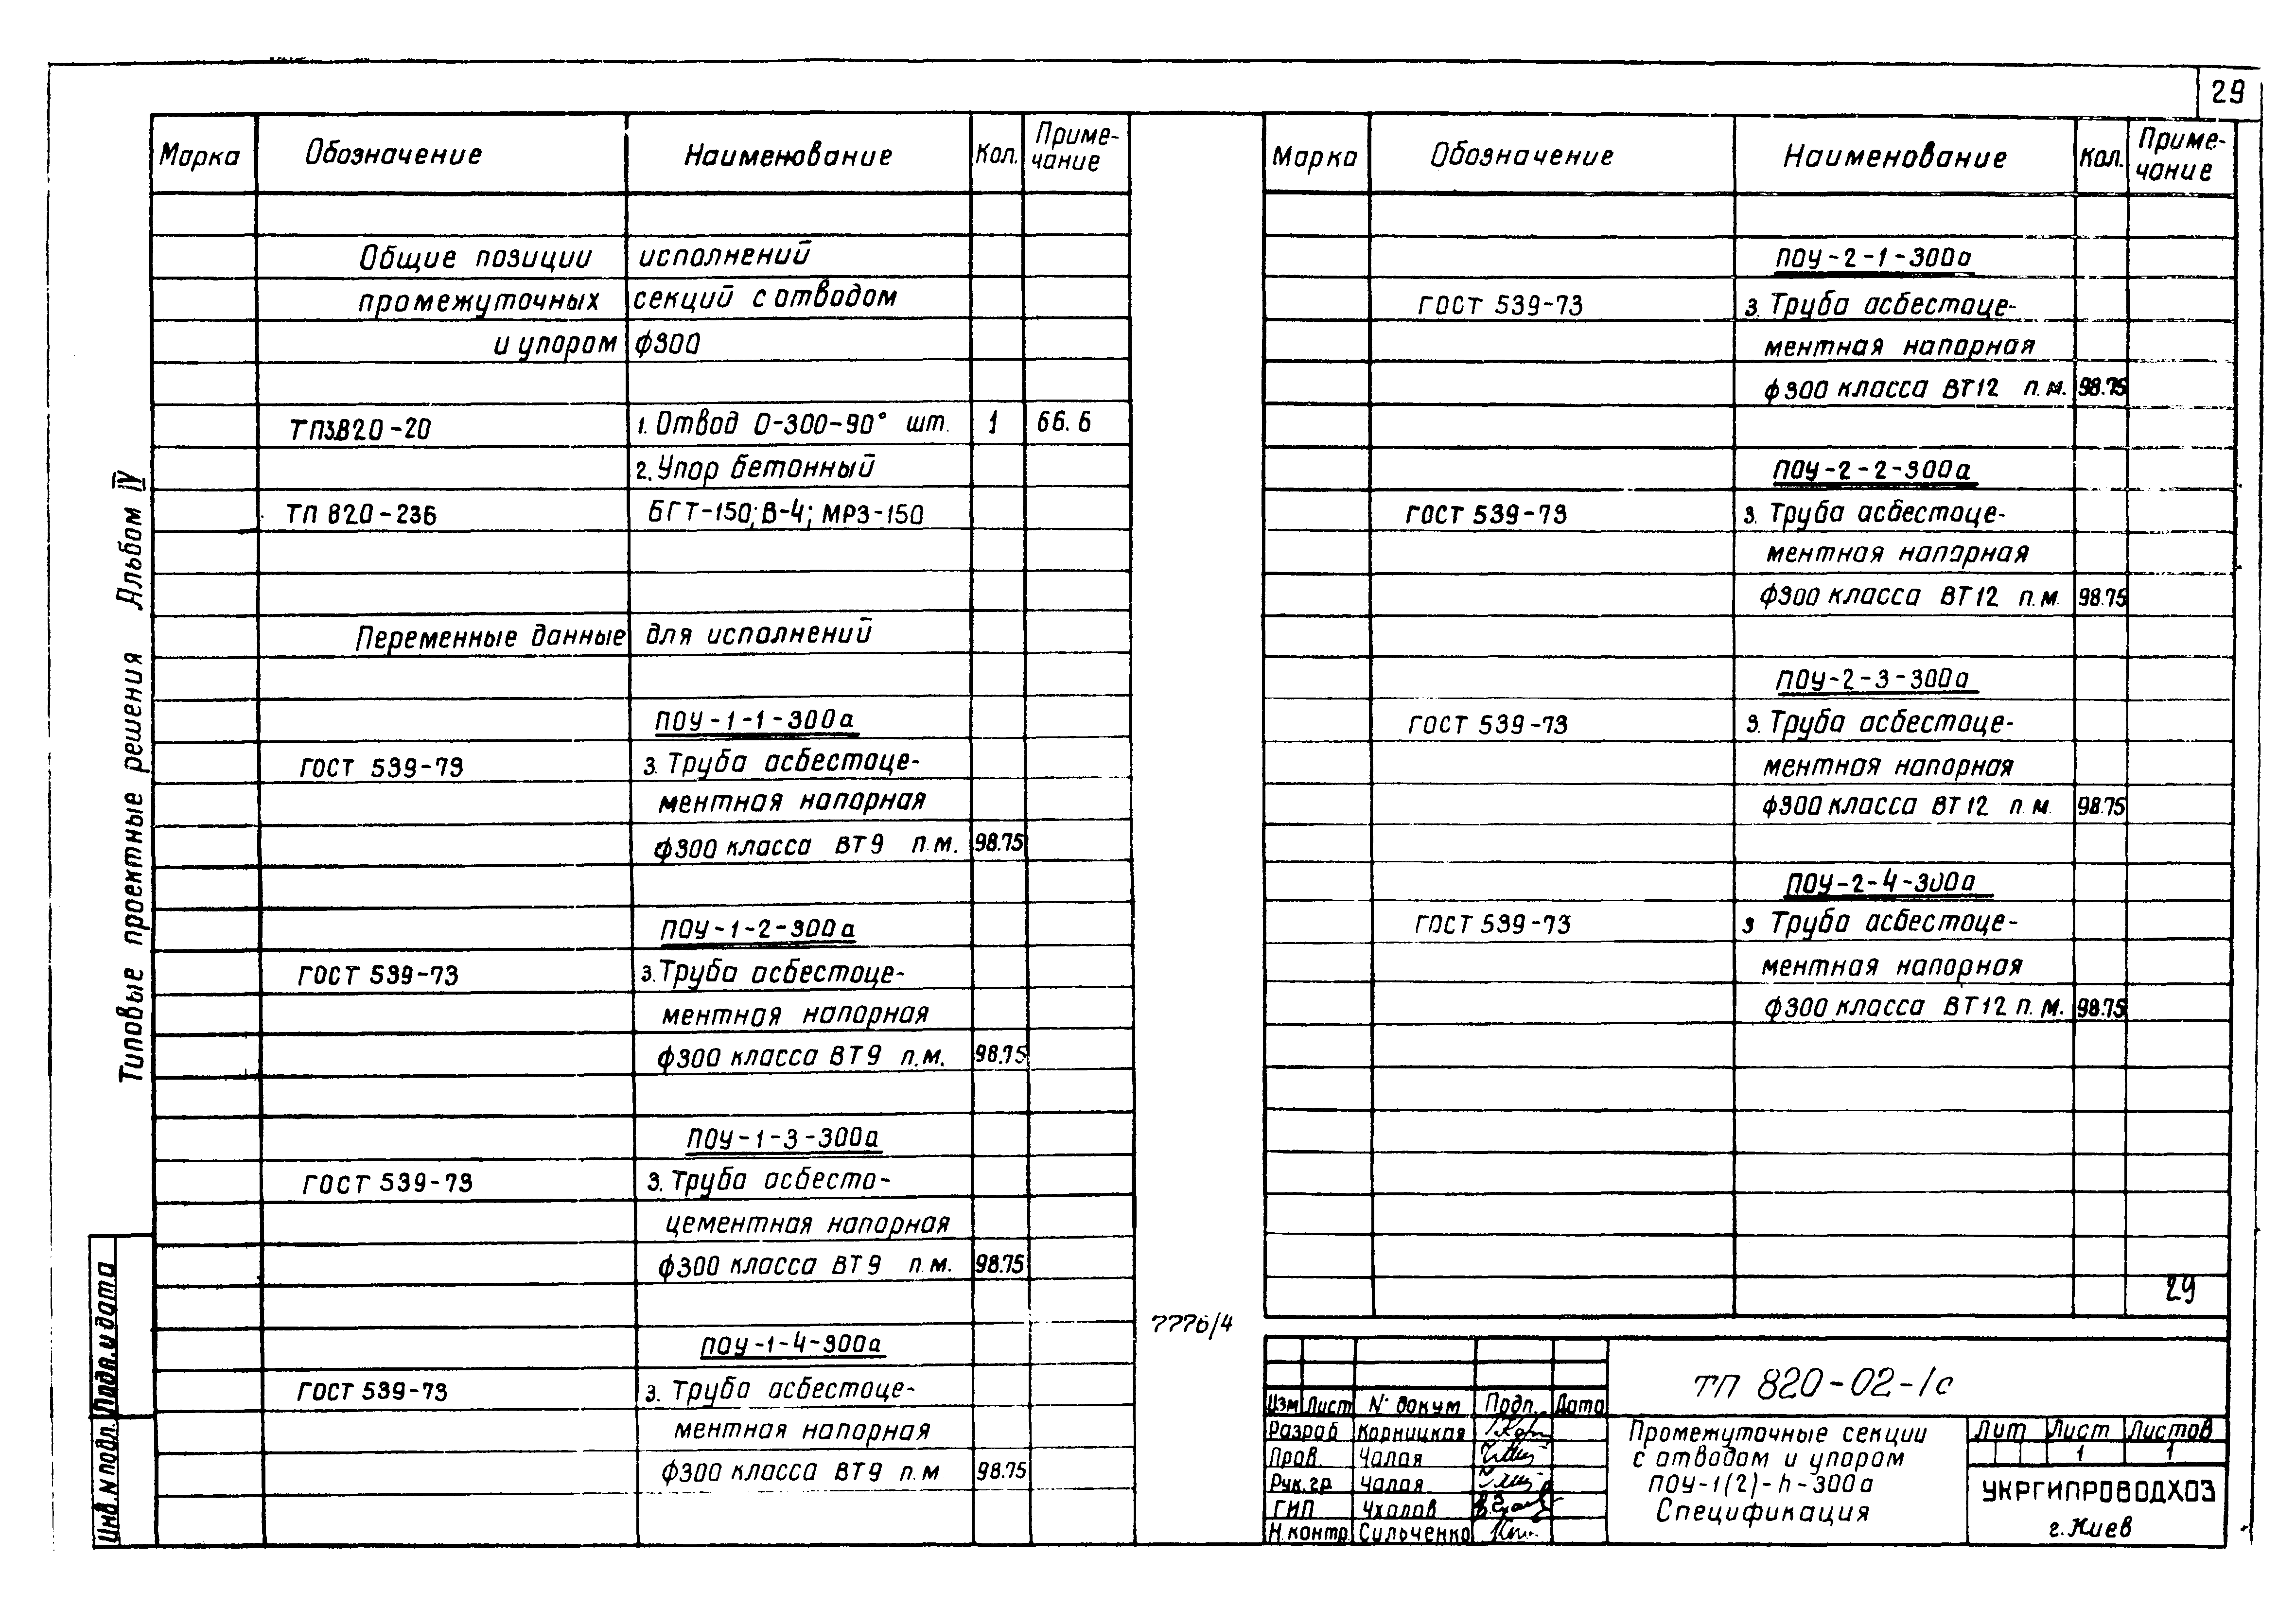 29
Марка Обозначение Наименование Кол. Приме-
чание
Общие позиции исполнений
промежуточных секций с отводом
и упором ф300
ТП3.820-20 1. Отвод О-300-90° шт. 1 66.6
2. Упор бетонный
ТП 820-236 БГТ-150; В-4; МРЗ-150
Переменные данные для исполнений
ПОУ-1-1-300а
ГОСТ 539-73 3. Труба асбестоце-
ментная напорная
ф300 класса ВТ9 п.м. 98.75
ПОУ-1-2-300а
ГОСТ 539-73 3. Труба асбестоце-
ментная напорная
ф300 класса ВТ9 п.м. 98.75
ПОУ-1-3-300а
ГОСТ 539-73 3. Труба асбесто-
цементная напорная
ф300 класса ВТ9 п.м. 98.75
ПОУ-1-4-300а
ГОСТ 539-73 3. Труба асбестоце-
ментная напорная
ф300 класса ВТ9 п.м 98.75
Марка Обозначение Наименование Кол. Приме-
чание
ПОУ-2-1-300а
ГОСТ 539-73 3. Труба асбестоце-
ментная напорная
ф300 класса ВТ12 п.м. 98.75
ПОУ-2-2-300а
ГОСТ 539-73 3. Труба асбестоце-
ментная напорная
ф300 класса ВТ12 п.м. 98.75
ПОУ-2-3-300а
ГОСТ 539-73 3. Труба асбестоце-
ментная напорная
ф300 класса ВТ12 п.м. 98.75
ПОУ-2-4-300а
ГОСТ 539-73 3 Труба асбестоце-
ментная напорная
ф300 класса ВТ12 п.м. 98.75
29
7776/4
Типовые проектные решения Альбом IV
Инв. N подл. Подп. и дата
ТП 820-02-1с
Изм Лист N° докум Подп. Дата
Разраб Корницкая
Пров. Чалая
Рук. гр. Чалая
ГИП Чхалов
Н.контр. Сильченко
Промежуточные секции
с отводом и упором
ПОУ-1(2)-h-300а
Спецификация
Лит Лист Листов
1 1
УКРГИПРОВОДХОЗ
г. Киев